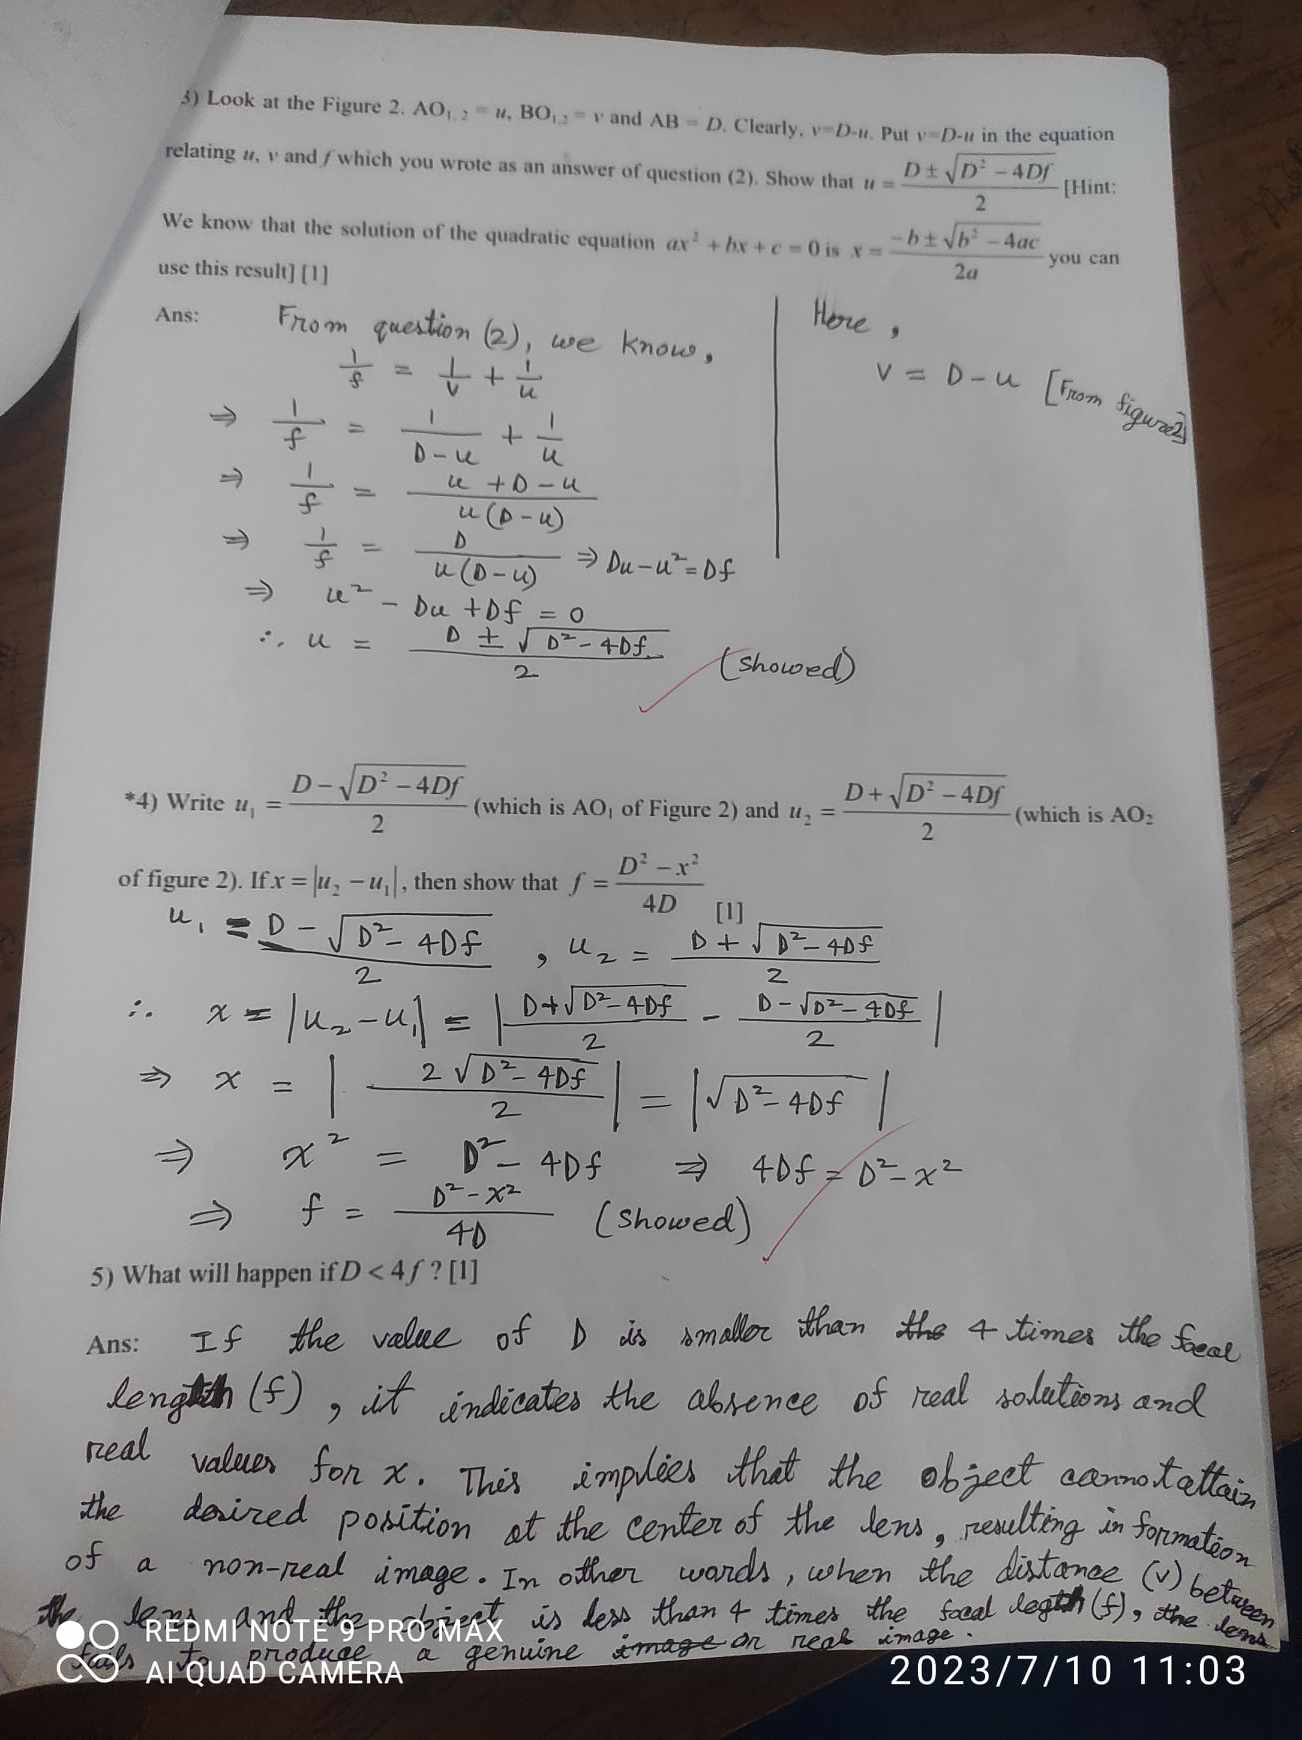 3) Look at the Figure 2. AO₁,₂ = u, BO₁,₂ = v and AB = D. Clearly, v=D-u. Put v=D-u in the equation
relating u, v and f which you wrote as an answer of question (2). Show that u = (D ± √(D² − 4Df))/2 [Hint:
We know that the solution of the quadratic equation ax² + bx + c = 0 is x = (−b ± √(b² − 4ac))/2a you can
use this result] [1]
Ans: From question (2), we know,
1/f = 1/v + 1/u
⇒ 1/f = 1/(D−u) + 1/u
⇒ 1/f = (u+D−u)/(u(D−u))
⇒ 1/f = D/(u(D−u)) ⇒ Du−u²=Df
⇒ u² − Du + Df = 0
∴ u = (D ± √(D²−4Df))/2 (Showed)
Here,
v = D−u [From figure 2]
*4) Write u₁ = (D − √(D² − 4Df))/2 (which is AO₁ of Figure 2) and u₂ = (D + √(D² − 4Df))/2 (which is AO₂
of figure 2). If x = |u₂ − u₁|, then show that f = (D² − x²)/4D [1]
u₁ = (D − √(D²−4Df))/2 , u₂ = (D + √(D²−4Df))/2
∴ x = |u₂−u₁| = |(D+√(D²−4Df))/2 − (D−√(D²−4Df))/2|
⇒ x = |2√(D²−4Df)/2| = |√(D²−4Df)|
⇒ x² = D²−4Df ⇒ 4Df = D²−x²
⇒ f = (D²−x²)/4D (Showed)
5) What will happen if D < 4f ? [1]
Ans: If the value of D is smaller than the 4 times the focal
length (f), it indicates the absence of real solutions and
real values for x. This implies that the object cannot attain
the desired position at the center of the lens, resulting in formation
of a non-real image. In other words, when the distance (v) between
the lens and the object is less than 4 times the focal legth (f), the lens
fails to produce a genuine image or real image.
REDMI NOTE 9 PRO MAX
AI QUAD CAMERA
2023/7/10 11:03